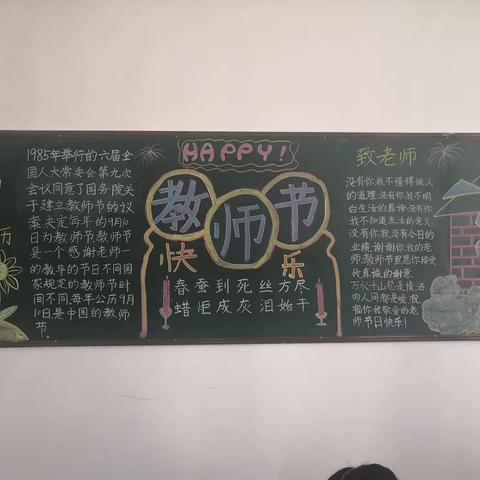 历
1985年举行的六届全
国人大常委会第九次
会议同意了国务院关
于建立教师节的议
案决定每年的9月10
日为教师节教师节
是一个感谢老师一
的教导的节日不同国
家规定的教师节时
间不同每年公历9月
10日是中国的教师
节
HAPPY!
教师节
快乐
春蚕到死丝方尽
蜡炬成灰泪始干
致老师
没有你,我不懂得做人
的道理,没有你,我不明
白生活的真谛,没有你
我不知道生活的意义,
没有你就没有今日的
业绩,谢谢你,我的老
师,教师节里愿你接受
我真诚的谢意
万水千山总是情,洒
向人间都是爱,祝
福你我敬爱的老
师,节日快乐!